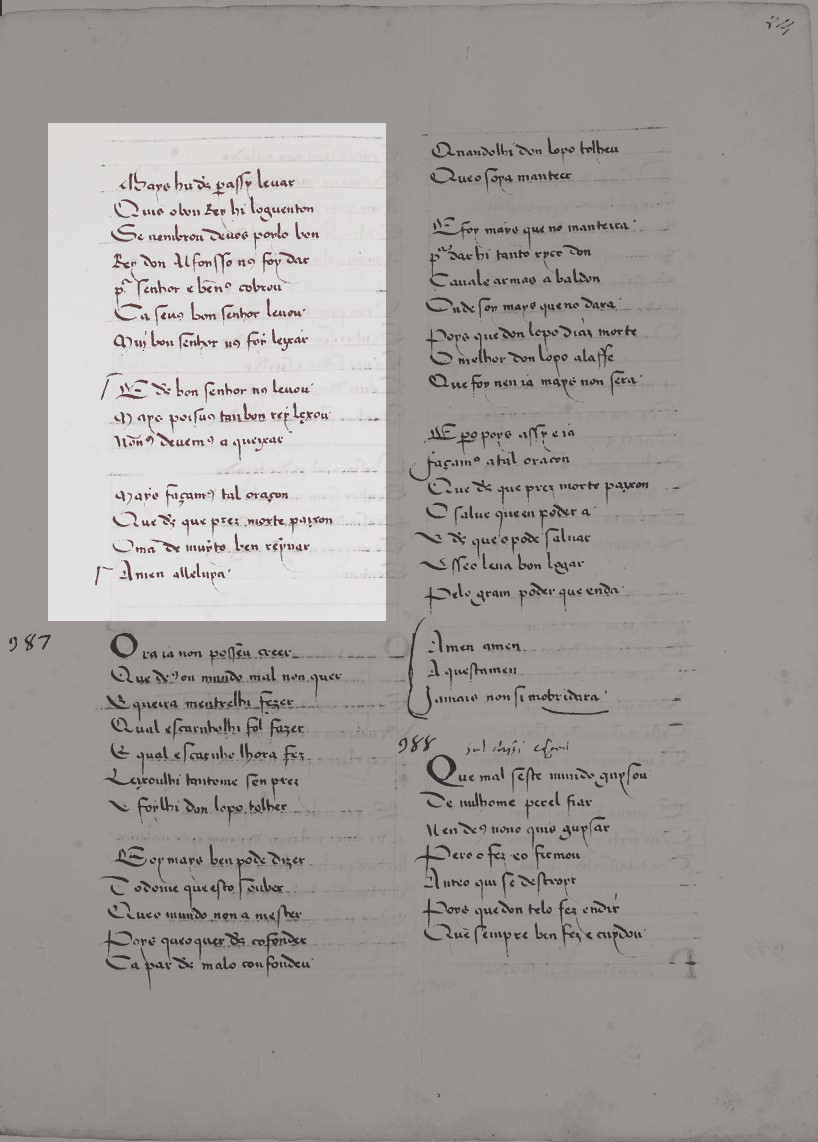 Mays hu ds̃ passy leuar
Quis o bon Rey hi loguenton
Se nembrou deuos porlo bon
Rey don Alfonsso nꝰ foy dar
pͬ senhor e bẽnꝰ cobrou
Ca seuꝰ bon senhor leuou
Mui bon senhor uꝰ foy leyxar
E ds̃ bon senhor nꝰ leuou
Mays poisuꝰ tan bon rey lexou
Nonꝰ deuemꝰ a queyxar
Mays façamꝰ tal oraçon
Que ds̃ que prez morte paixon
O mãde muyto ben reynar
Amen alleluya
987
Ora ia non possẽu creer
Que deꝰ ou mundo mal non quer
E queira mentrelhi fezer
Qual escarnholhi sol fazer
E qual escarnho lhora fez
Leixoulhi tantome sen prez
E foylhi don lopo tolher
E oy mays ben pode dizer
Todome que esto souber
Queo mundo non a mester
Poys queo quer ds̃ cofonder
Ca par ds̃ malo confondeu
Quandolhi don lopo tolheu
Queo soya manteer
E foy mays que no manteira
pͣ dar hi tanto ryco don
Caualè armas a baldon
Ondesoy mays queno dara
Poys que don lopo diaz morte
O melhor don lopo alasse
Que foy nen ia mays non sera
E po poys assy e ia
façamꝰ atal oraçon
Que ds̃ que prez morte paixon
O salue queen poder a
E ds̃ queo pode saluar
Esseo leua bon logar
Pelo gram poder que enda
Amen amen
Aquestamen
Jamais non si mobridara
988
Que mal seste mundo guysou
De nulhome perel fiar
Nen deꝰ nono quis guysar
Pero o fez eo firmou
Anteo qui se destroyr
Poys que don telo fez endir
Quẽ sempre ben fez e cuydou